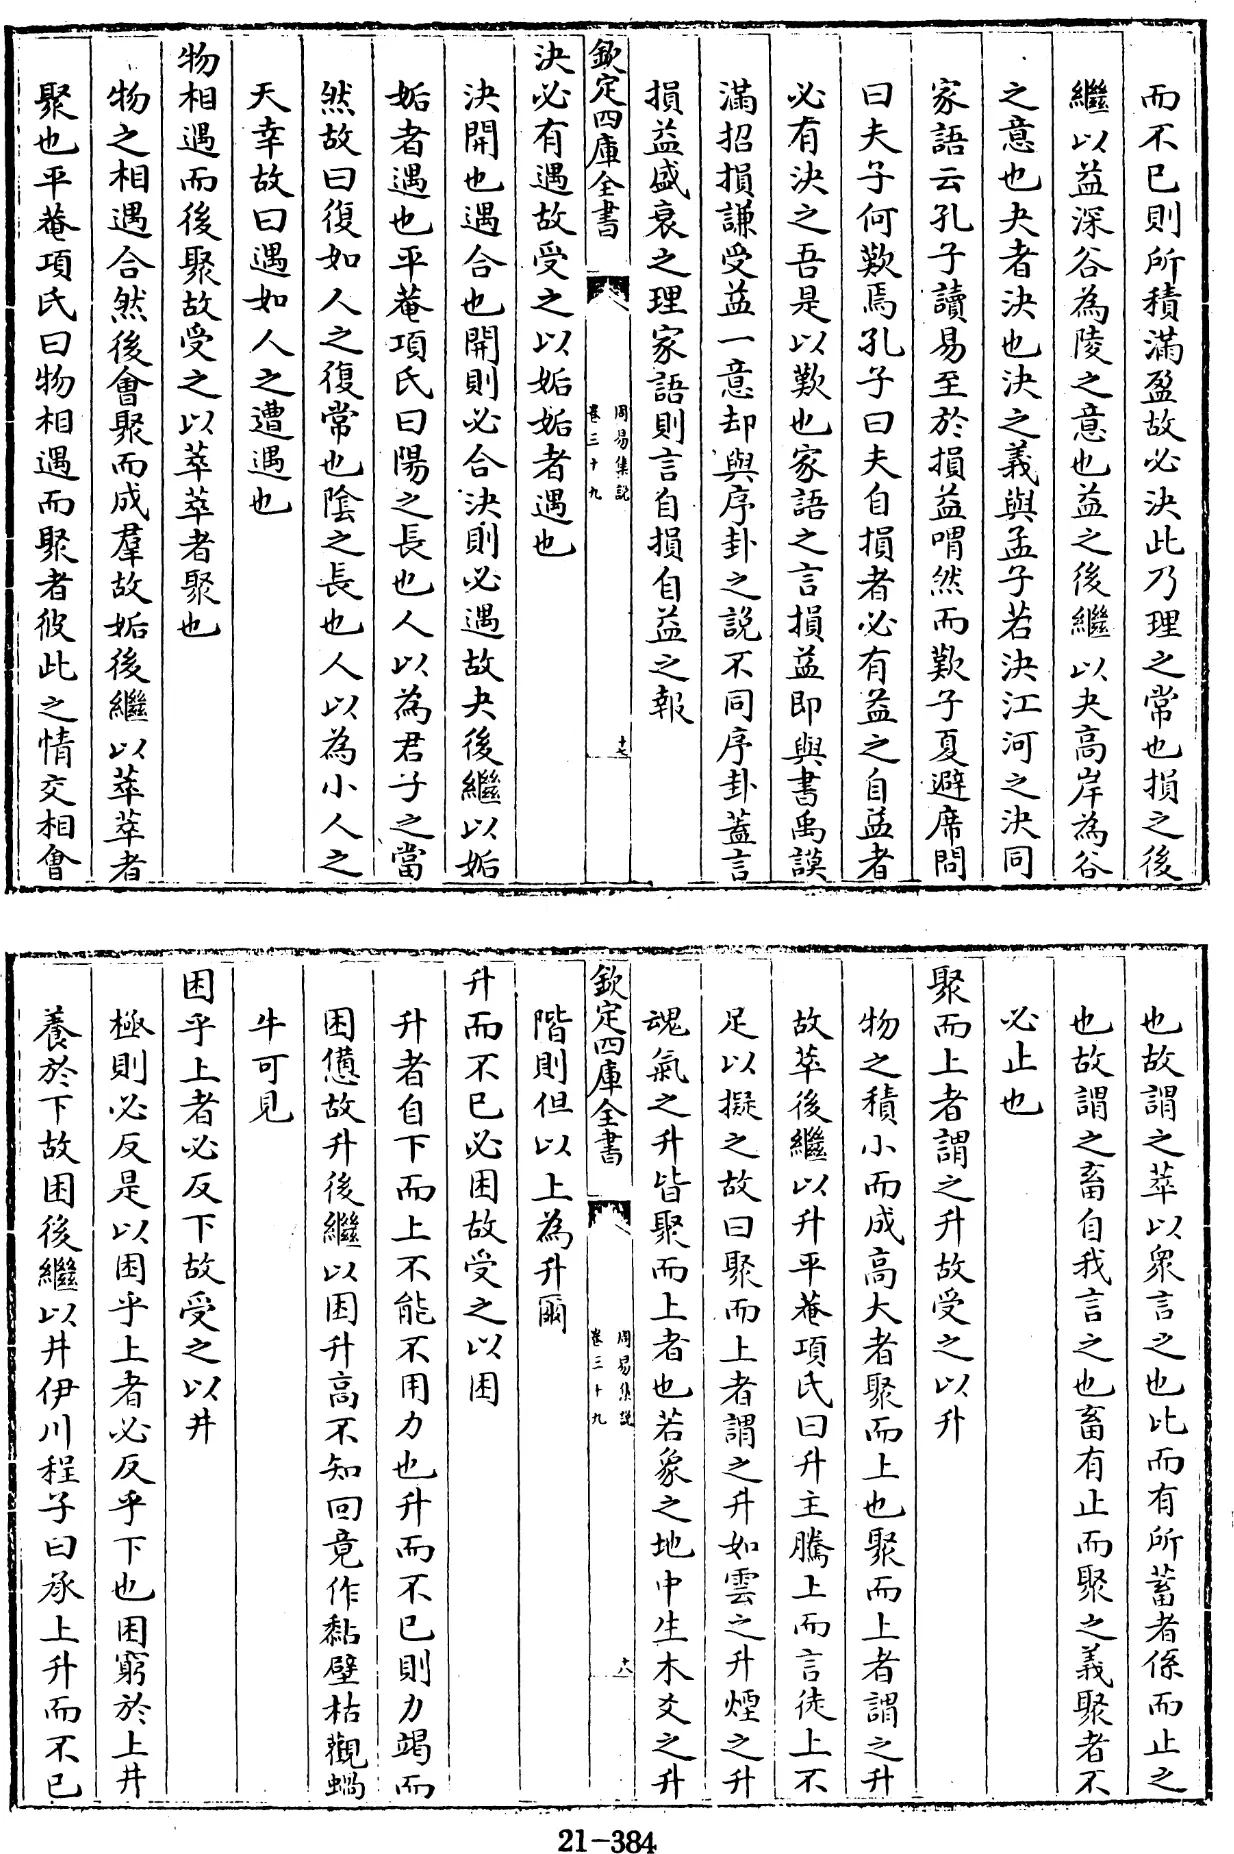 而不已則所積滿盈故必決此乃理之常也損之後
繼以益深谷為陵之意也益之後繼以夬高岸為谷
之意也夬者決也決之義與孟子若決江河之決同
家語云孔子讀易至於損益喟然而歎子夏避席問
曰夫子何歎焉孔子曰夫自損者必有益之自益者
必有決之吾是以歎也家語之言損益即與書禹謨
滿招損謙受益一意却與序卦之說不同序卦蓋言
損益盛衰之理家語則言自損自益之報
欽定四庫全書
周易集說
卷三十九
十七
決必有遇故受之以姤姤者遇也
決開也遇合也開則必合決則必遇故夬後繼以姤
姤者遇也平菴項氏曰陽之長也人以為君子之當
然故曰復如人之復常也陰之長也人以為小人之
天幸故曰遇如人之遭遇也
物相遇而後聚故受之以萃萃者聚也
物之相遇合然後會聚而成羣故姤後繼以萃萃者
聚也平菴項氏曰物相遇而聚者彼此之情交相會
也故謂之萃以衆言之也比而有所蓄者係而止之
也故謂之畜自我言之也畜有止而聚之義聚者不
必止也
聚而上者謂之升故受之以升
物之積小而成高大者聚而上也聚而上者謂之升
故萃後繼以升平菴項氏曰升主騰上而言徒上不
足以擬之故曰聚而上者謂之升如雲之升煙之升
魂氣之升皆聚而上者也若象之地中生木爻之升
欽定四庫全書
周易集說
卷三十九
十八
階則但以上為升爾
升而不已必困故受之以困
升者自下而上不能不用力也升而不已則力竭而
困憊故升後繼以困升高不知回竟作黏壁枯觀蝸
牛可見
困乎上者必反下故受之以井
極則必反是以困乎上者必反乎下也困窮於上井
養於下故困後繼以井伊川程子曰承上升而不已
21-384